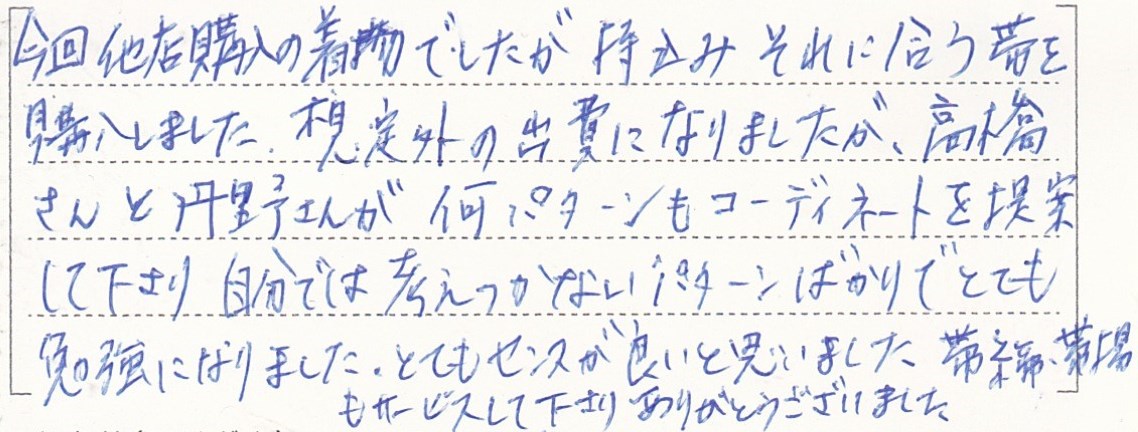 今回他店購入の着物でしたが 持込み それに合う帯を
購入しました。想定外の出費になりましたが、高橋
さんと丹野さんが 何パターンもコーディネートを提案
して下さり 自分では 考えつかないパターンばかりでとても
勉強になりました。とてもセンスが良いと思いました 帯〆、帯揚
もサービスして下さり ありがとうございました